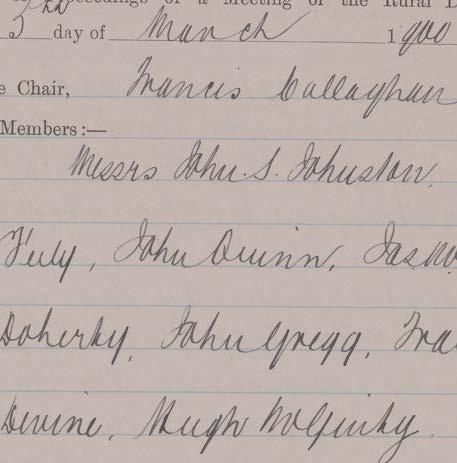 Proceedings of a Meeting of the Rural D
3rd day of March 1900
e Chair, Francis Callaghan
Members:—
Messrs John. S. Johnston,
Feely, John Quinn, Jas
Doherty, John Gregg, Fra
Devine, Hugh McGinty.